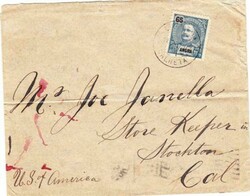 65
ANGRA
Mr Joe Janella
Store Keeper in
Stockton
Cal
U.S of America